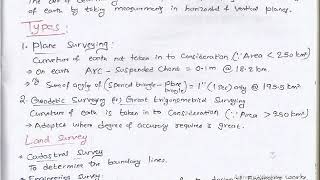 of earth by taking measurement in horizontal & vertical planes.
Types:
1. Plane Surveying:
Curvature of earth not taken in to Consideration (∵ Area < 250 km²)
⇒ On earth Arc - Suspended Chord = 0.1m @ 18.2 km.
⇒ Sum of angle of (Spherical triangle - plane triangle) = 1" (1 sec) only @ 195.5 km²
2. Geodetic Surveying (or) Great trigonometrical Surveying
Curvature of earth is taken in to Consideration (∵ Area > 250 km²)
⇒ Adopted where degree of accuracy required is great.
Land Survey
⇒ Cadastral Survey
To determine the boundary lines.
⇒ Engineering Survey